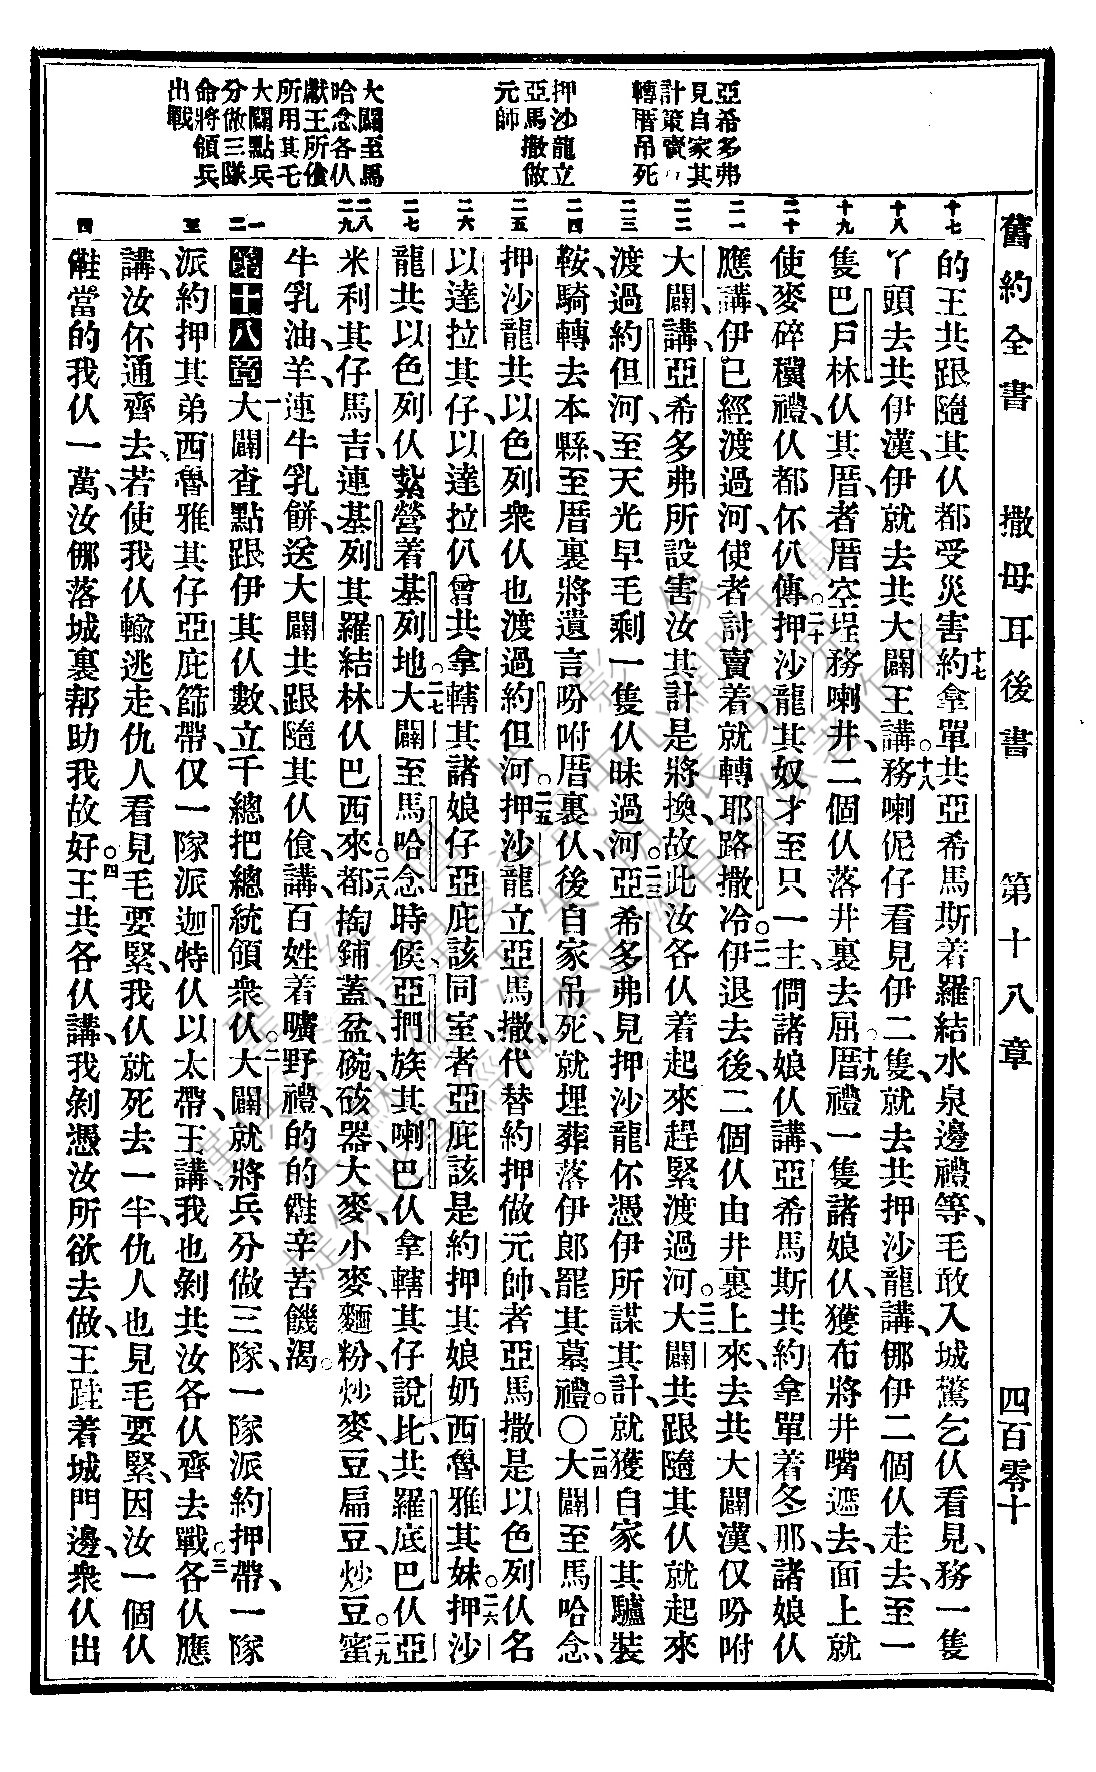 舊約全書　撒母耳後書　第十八章　四百零十
亞希多弗
見自家其
計策賣
轉厝吊死
押沙龍立
亞馬撒做
元帥
大闢至馬
哈念各仈
獻王所傖
所用其乇
大闢點兵
分做三隊
命將領兵
出戰
十七
十八
十九
二十
二一
二二
二三
二四
二五
二六
二七
二八
二九
一
二
至
四
的王共跟隨其仈都受災害十七約拿單共亞希馬斯着羅結水泉邊禮等、毛敢入城驚乞仈看見、務一隻
丫頭去共伊漢、伊就去共大闢王講。十八務喇伲仔看見伊二隻、就去共押沙龍講、㑚伊二個仈走去、至一
隻巴戶林仈其厝、者厝空埕務喇井、二個仈落井裏去屈。十九厝禮一隻諸娘仈、獲布將井嘴遮去、面上就
使麥碎穬禮、仈都伓仈傳。二十押沙龍其奴才至只一主、倜諸娘仈講、亞希馬斯共約拿單着冬那、諸娘仈
應講、伊已經渡過河、使者討賣着就轉耶路撒冷。二一伊退去後、二個仈由井裏上來、去共大闢漢、仅吩咐
大闢、講亞希多弗所設害汝其計是將換、故此汝各仈着起來趕緊渡過河。二二大闢共跟隨其仈就起來
渡過約但河、至天光早毛剩一隻仈昧過河。二三亞希多弗見押沙龍伓憑伊所謀其計、就獲自家其驢裝
鞍、騎轉去本縣、至厝裏將遺言吩咐厝裏仈、後自家吊死、就埋葬落伊郎罷其墓禮。○二四大闢至馬哈念、
押沙龍共以色列衆仈也渡過約但河。二五押沙龍立亞馬撒、代替約押做元帥、者亞馬撒是以色列仈名
以達拉其仔、以達拉仈曾共拿轄其諸娘仔亞庇該同室、者亞庇該是約押其娘奶西魯雅其妹。二六押沙
龍共以色列仈紮營着基列地。二七大闢至馬哈念時候、亞捫族其喇巴仈拿轄其仔說比、共羅底巴仈亞
米利其仔馬吉、連基列其羅結林仈巴西來、。二八都掏鋪蓋、盆碗、砹器、大麥、小麥、麵粉、炒麥、豆、扁豆、炒豆。二九蜜
牛乳油、羊、連牛乳餅、送大闢共跟隨其仈傖、講、百姓着曠野禮、的的𣍐辛苦饑渴。
第十八章一大闢查點跟伊其仈數、立千總把總統領衆仈。二大闢就將兵分做三隊、一隊派約押帶、一隊
派約押其弟西魯雅其仔亞庇篩帶、仅一隊派迦特仈以太帶、王講、我也剝共汝各仈齊去戰。三各仈應
講、汝伓通齊去、若使我仈輸逃走、仇人看見毛要緊、我仈就死去一半、仇人也見毛要緊、因汝一個仈
𣍐當的我仈一萬、汝㑚落城裏帮助我故好。四王共各仈講、我剝憑汝所欲去做、王跬着城門邊、衆仈出